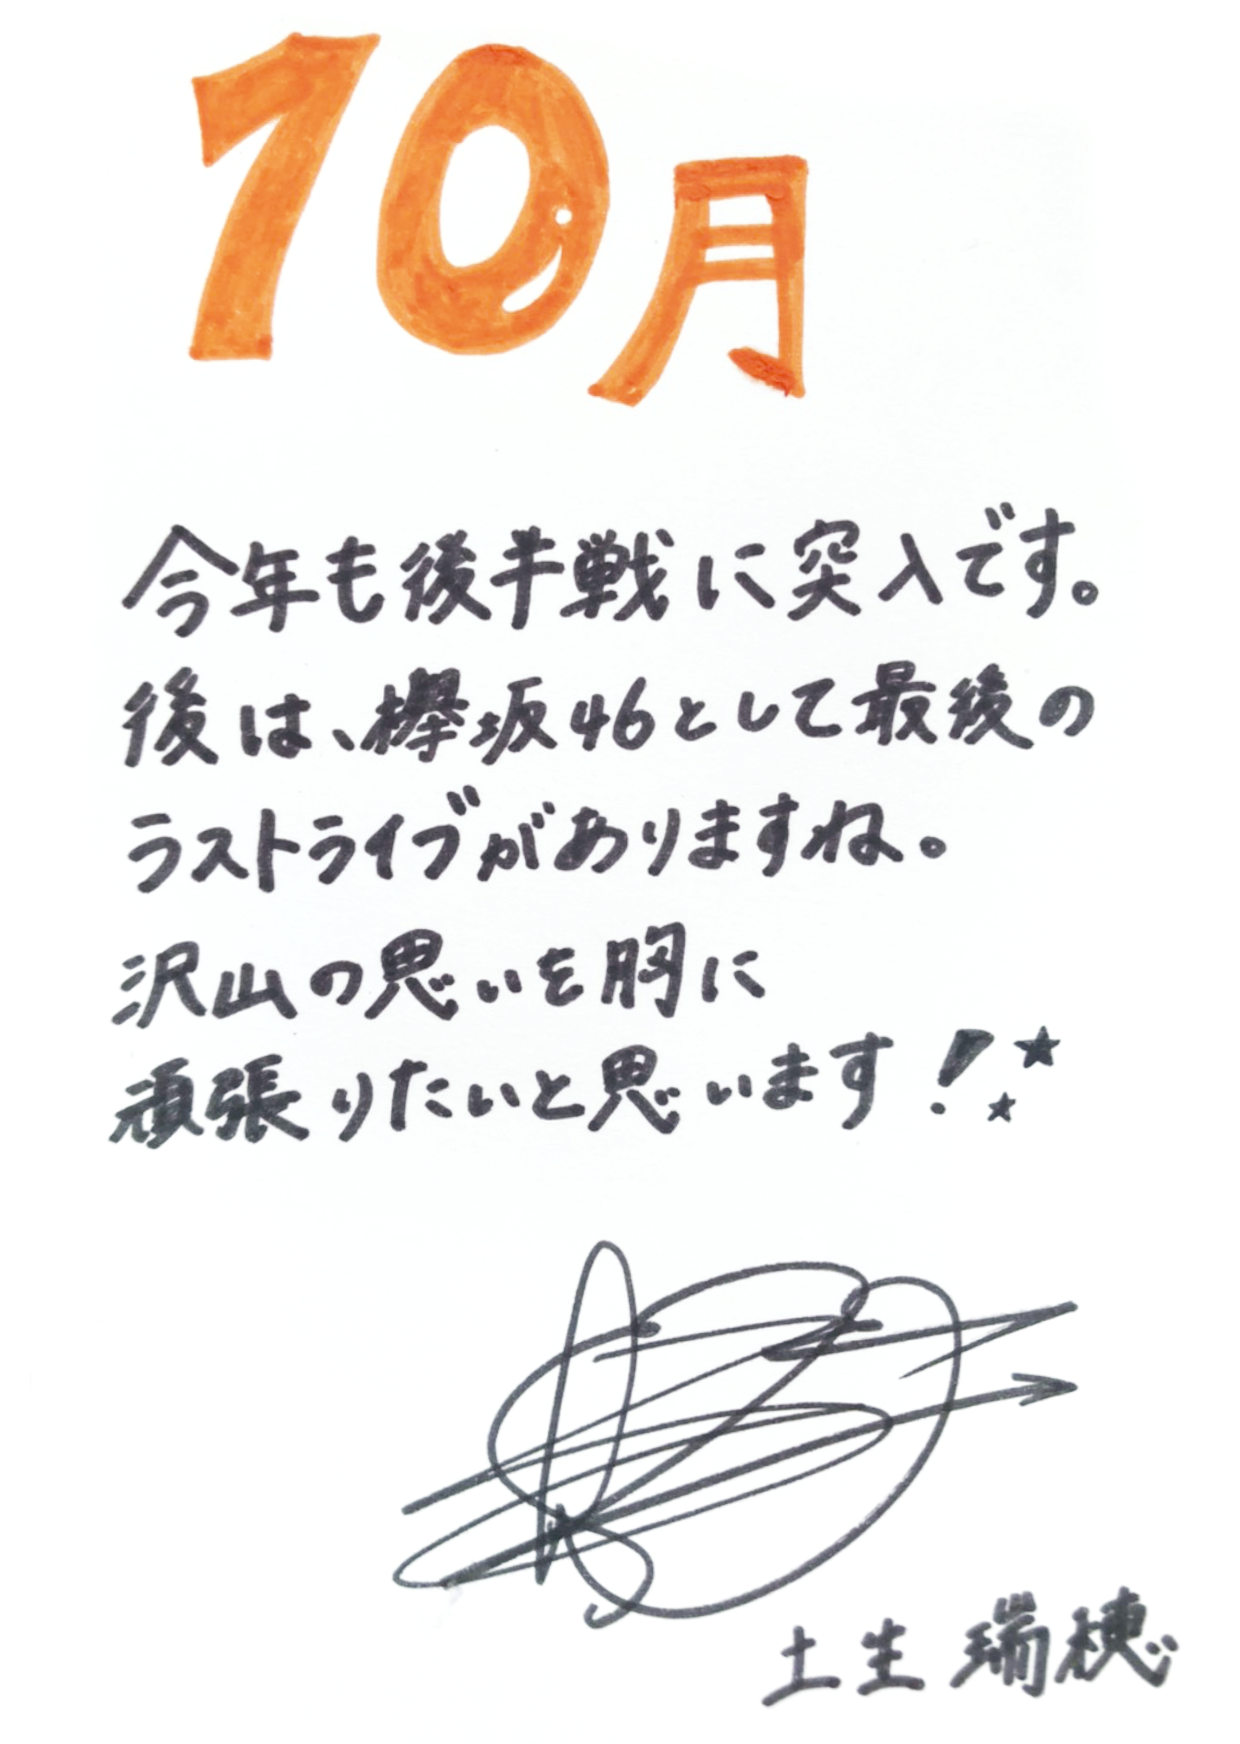 10月
今年も後半戦に突入です。
後は、欅坂46として最後の
ラストライブがありますね。
沢山の思いを胸に
頑張りたいと思います！★★
土生瑞穂